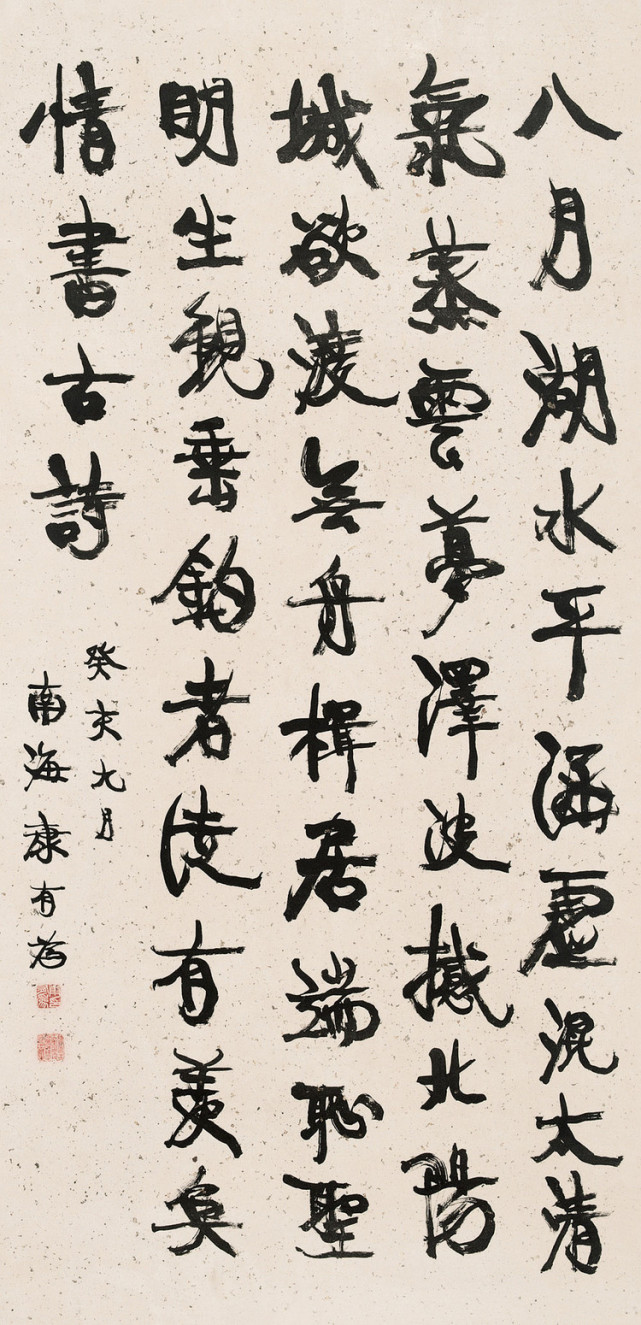 八月湖水平涵虛混太清
氣蒸雲夢澤波撼北陽
城欲渡無舟楫居端恥聖
明坐觀垂釣者徒有羡魚
情書古詩
癸亥九月
南海康有為